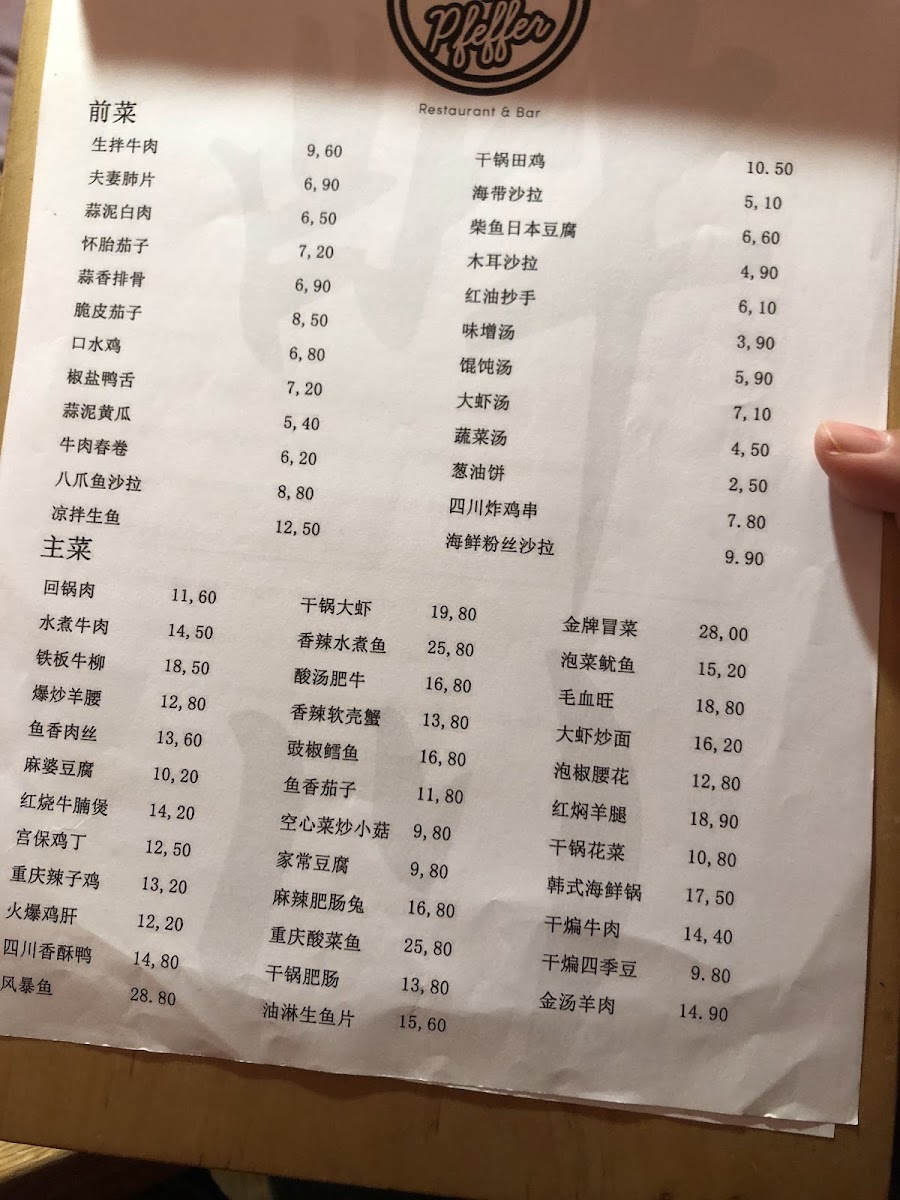 Pfeffer
Restaurant & Bar
前菜
生拌牛肉 9,60
夫妻肺片 6,90
蒜泥白肉 6,50
怀胎茄子 7,20
蒜香排骨 6,90
脆皮茄子 8,50
口水鸡 6,80
椒盐鸭舌 7,20
蒜泥黄瓜 5,40
牛肉春卷 6,20
八爪鱼沙拉 8,80
凉拌生鱼 12,50
干锅田鸡 10.50
海带沙拉 5,10
柴鱼日本豆腐 6,60
木耳沙拉 4,90
红油抄手 6,10
味增汤 3,90
馄饨汤 5,90
大虾汤 7,10
蔬菜汤 4,50
葱油饼 2,50
四川炸鸡串 7.80
海鲜粉丝沙拉 9.90
主菜
回锅肉 11,60
水煮牛肉 14,50
铁板牛柳 18,50
爆炒羊腰 12,80
鱼香肉丝 13,60
麻婆豆腐 10,20
红烧牛腩煲 14,20
宫保鸡丁 12,50
重庆辣子鸡 13,20
火爆鸡肝 12,20
四川香酥鸭 14,80
风暴鱼 28.80
干锅大虾 19,80
香辣水煮鱼 25,80
酸汤肥牛 16,80
香辣软壳蟹 13,80
豉椒鳕鱼 16,80
鱼香茄子 11,80
空心菜炒小菇 9,80
家常豆腐 9,80
麻辣肥肠兔 16,80
重庆酸菜鱼 25,80
干锅肥肠 13,80
油淋生鱼片 15,60
金牌冒菜 28,00
泡菜鱿鱼 15,20
毛血旺 18,80
大虾炒面 16,20
泡椒腰花 12,80
红焖羊腿 18,90
干锅花菜 10,80
韩式海鲜锅 17,50
干煸牛肉 14,40
干煸四季豆 9.80
金汤羊肉 14.90